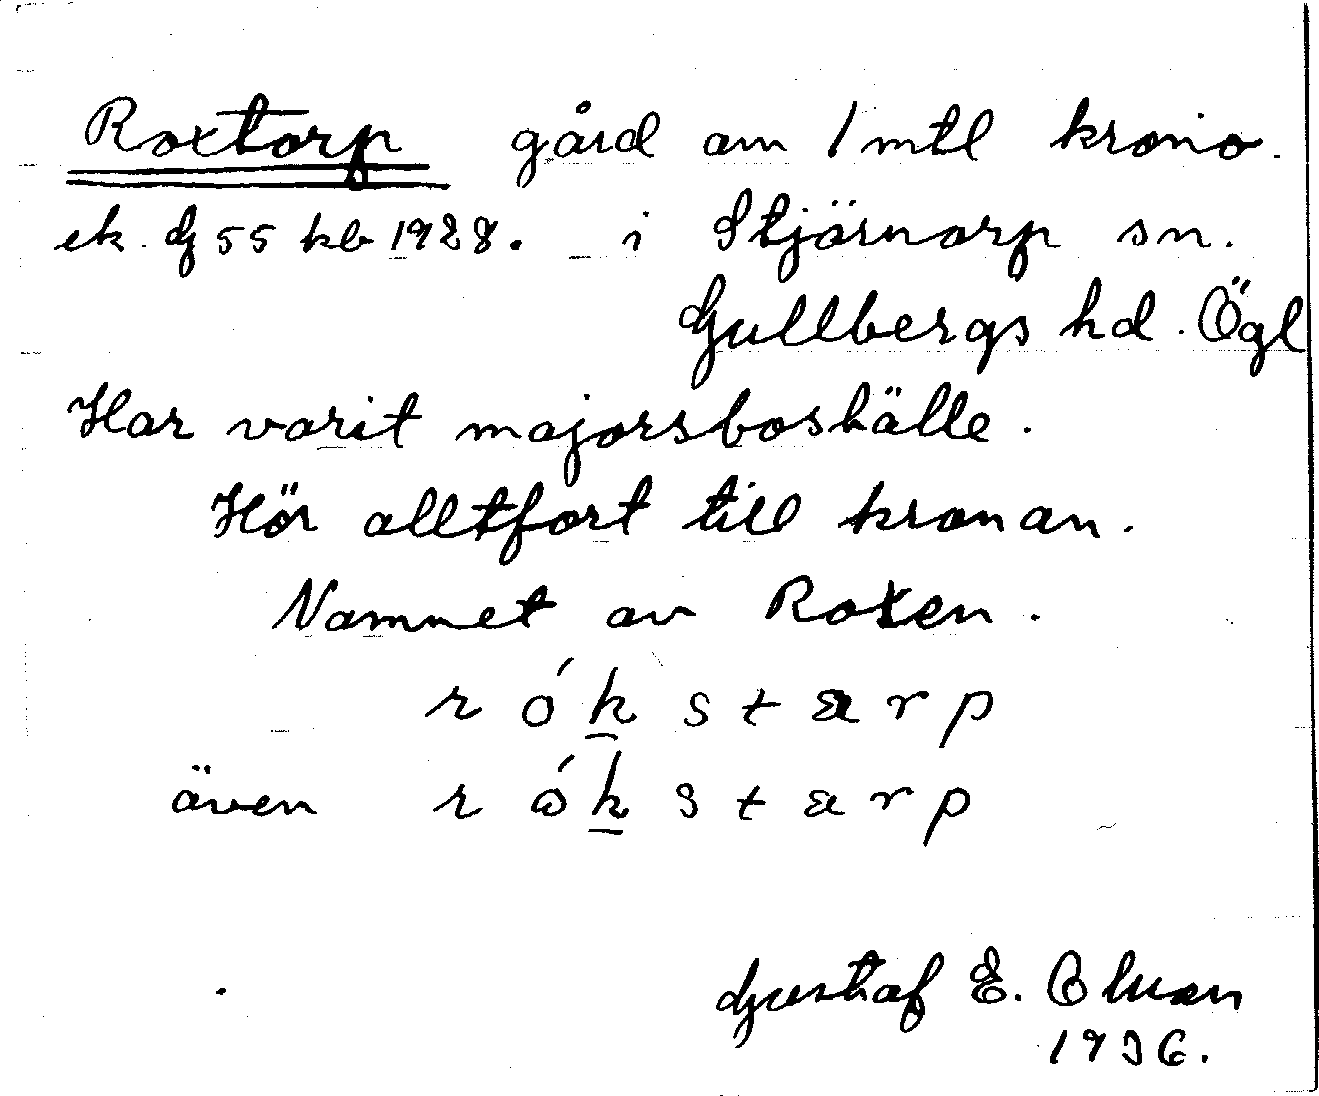 Roxtorp gård om 1 mtl krono.
ek. G 55 kb 1928. i Stjärnorp sn.
Gullbergs hd. Ögl
Har varit majorsboställe.
Hör alltfort till kronan.
Namnet av Roxen.
r ó k s t a r p
även r ó k s t a r p
Gustaf E.
1936.